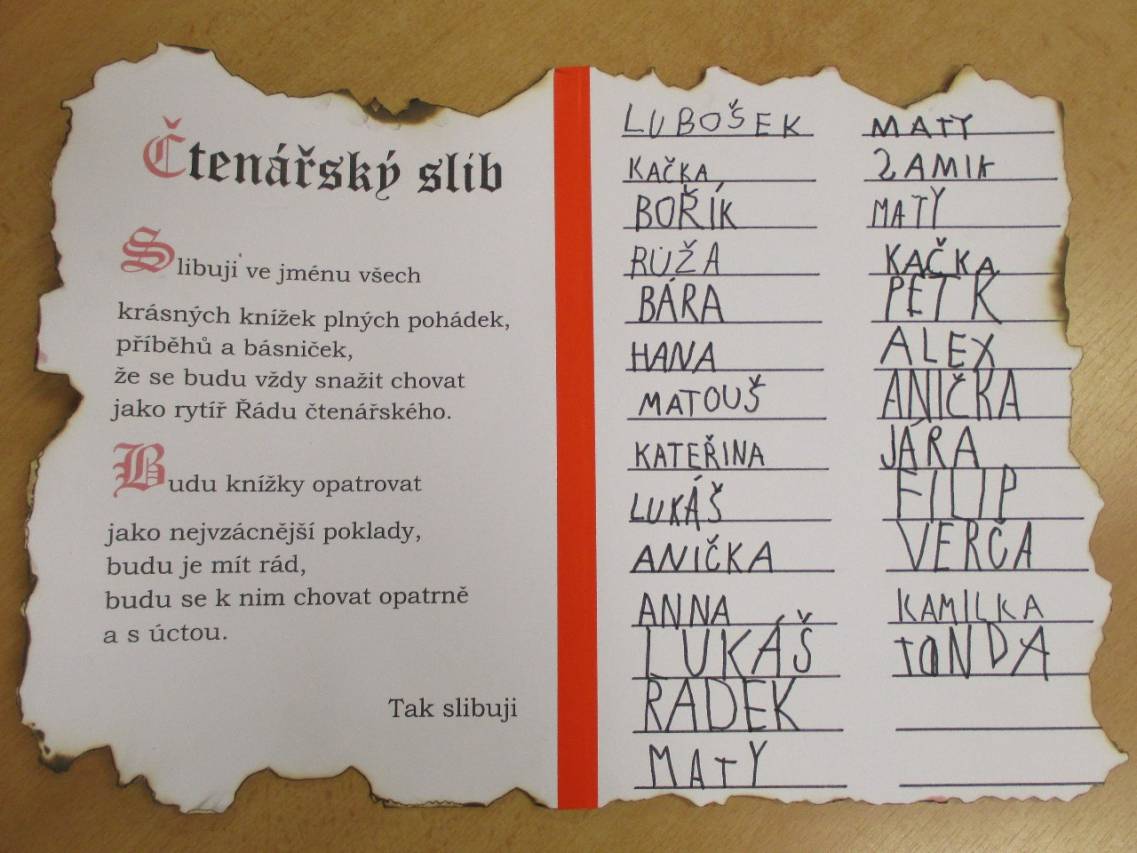 Čtenářský slib
Slibuji ve jménu všech
krásných knížek plných pohádek,
příběhů a básniček,
že se budu vždy snažit chovat
jako rytíř Řádu čtenářského.
Budu knížky opatrovat
jako nejvzácnější poklady,
budu je mít rád,
budu se k nim chovat opatrně
a s úctou.
Tak slibuji
LUBOŠEK
KAČKA
BOŘÍK
RŮŽA
BÁRA
HANA
MATOUŠ
KATEŘINA
LUKÁŠ
ANIČKA
ANNA
LUKÁŠ
RADEK
MATY
MATY
SAMIK
MATY
KAČKA
PETK
ALEX
ANIČKA
JÁRA
FILIP
VERČA
KAMILKA
TONDA